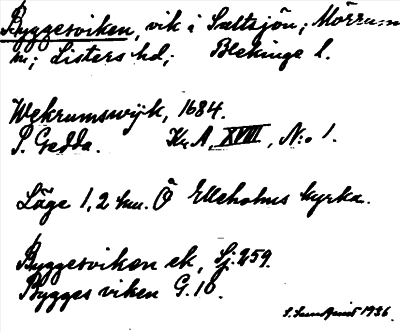 Byggesviken, vik i Saltsjön; Mörrums
sn; Listers hd; Blekinge l.
Wekrumswyk, 1684.
P. Gedda. Kr. A, XVIII, N:o 1.
Läge 1,2 km. Ö Elleholms kyrka.
Byggesviken ek, Sj. 259.
Bygges viken G. 10.
S. Sundqvist 1936.